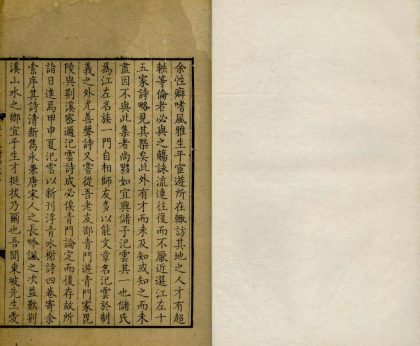 余性癖嗜風雅生平宦遊所在諏訪其地之人才有超
軼等倫老必與之觴詠流連往復而不厭近選江左十
五家詩略見其槩矣此外有才而未及知或知之而未
盡因不與此集者尚夥如宜興諸子汜雲其一也儲氏
為江左名族一門自相師友多以能文章名汜雲於制
義之外尤善聲詩又嘗從吾老友邵青門遊青門家毘
陵與荆溪密邇汜雲詩成必俟青門論定而後存故所
詣日進焉甲申夏汜雲以新刊浮青水榭詩四卷寄余
索序其詩清新雋永兼唐宋人之長吟諷之次益歎荆
溪山水之鄉宜乎生才挺拔乃爾也吾聞東坡先生愛